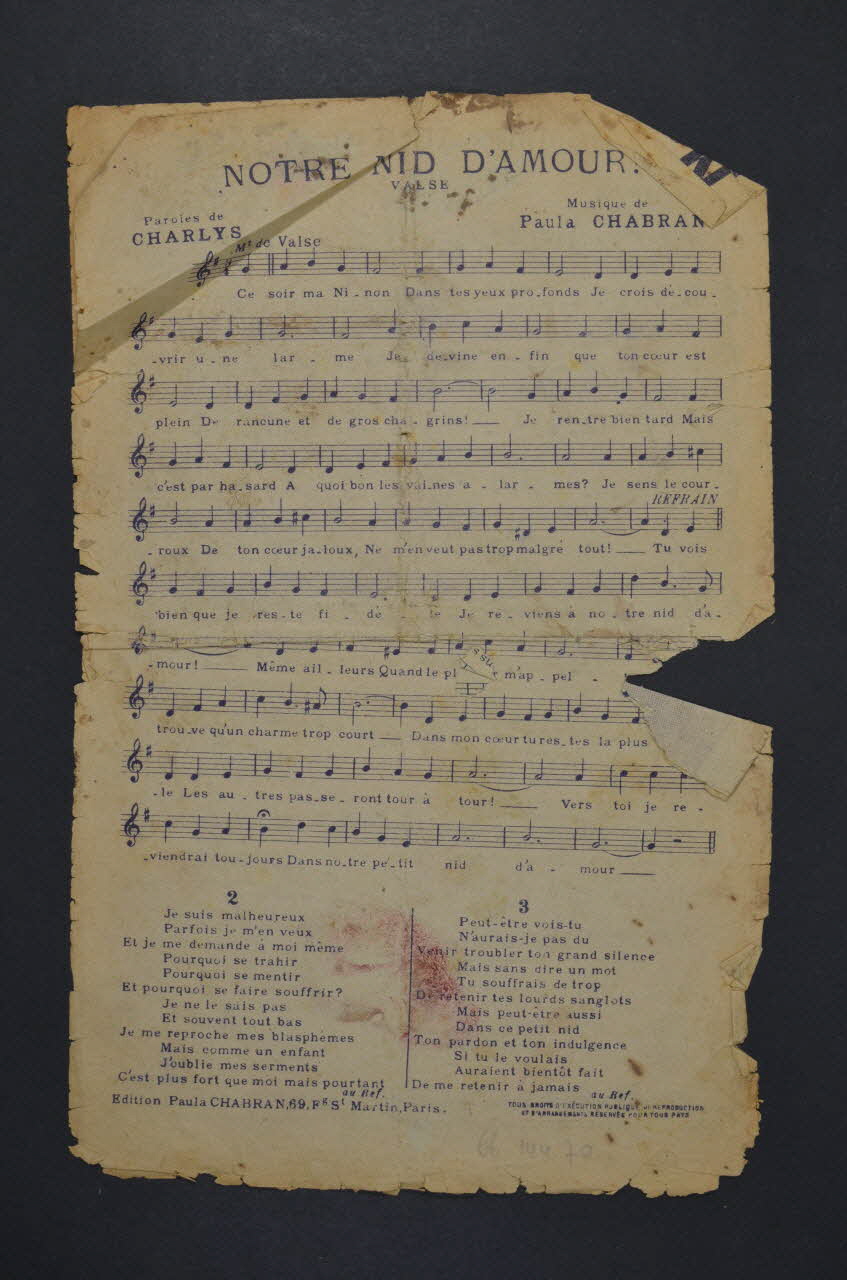 NOTRE NID D'AMOUR.
VALSE
Paroles de
CHARLYS
Musique de
Paula CHABRAN
Mt de Valse
Ce soir ma Ni_non Dans tes yeux pro_fonds Je crois dé_cou_
_vrir u_ne lar_me Je de_vine en_fin que ton cœur est
plein De rancune et de gros cha_grins! Je ren_tre bien tard Mais
c'est par ha_sard A quoi bon les vai_nes a_lar_mes? Je sens le cour_
REFRAIN
_roux De ton cœur ja_loux, Ne m'en veut pas trop malgré tout! Tu vois
bien que je res_te fi_dè_le Je re_viens à no_tre nid d'a_
_mour! Même ail_leurs Quand le pl m'ap_pel_
trou_ve qu'un charme trop court Dans mon cœur tu res_tes la plus
_le Les au_tres pas_se_ront tour à tour! Vers toi je re_
_viendrai tou_jours Dans no_tre pe_tit nid d'a_mour
2
Je suis malheureux
Parfois je m'en veux
Et je me demande à moi même
Pourquoi se trahir
Pourquoi se mentir
Et pourquoi se faire souffrir?
Je ne le sais pas
Et souvent tout bas
Je me reproche mes blasphèmes
Mais comme un enfant
J'oublie mes serments
C'est plus fort que moi mais pourtant
au Ref.
3
Peut-être vois-tu
N'aurais-je pas du
Venir troubler ton grand silence
Mais sans dire un mot
Tu souffrais de trop
De retenir tes lourds sanglots
Mais peut-être aussi
Dans ce petit nid
Ton pardon et ton indulgence
Si tu le voulais
Auraient bientôt fait
De me retenir à jamais
au Ref.
Edition Paula CHABRAN, 69, Fg St Martin, Paris.
TOUS DROITS D'EXÉCUTION PUBLIQUE, DE REPRODUCTION
ET D'ARRANGEMENTS RÉSERVÉS POUR TOUS PAYS